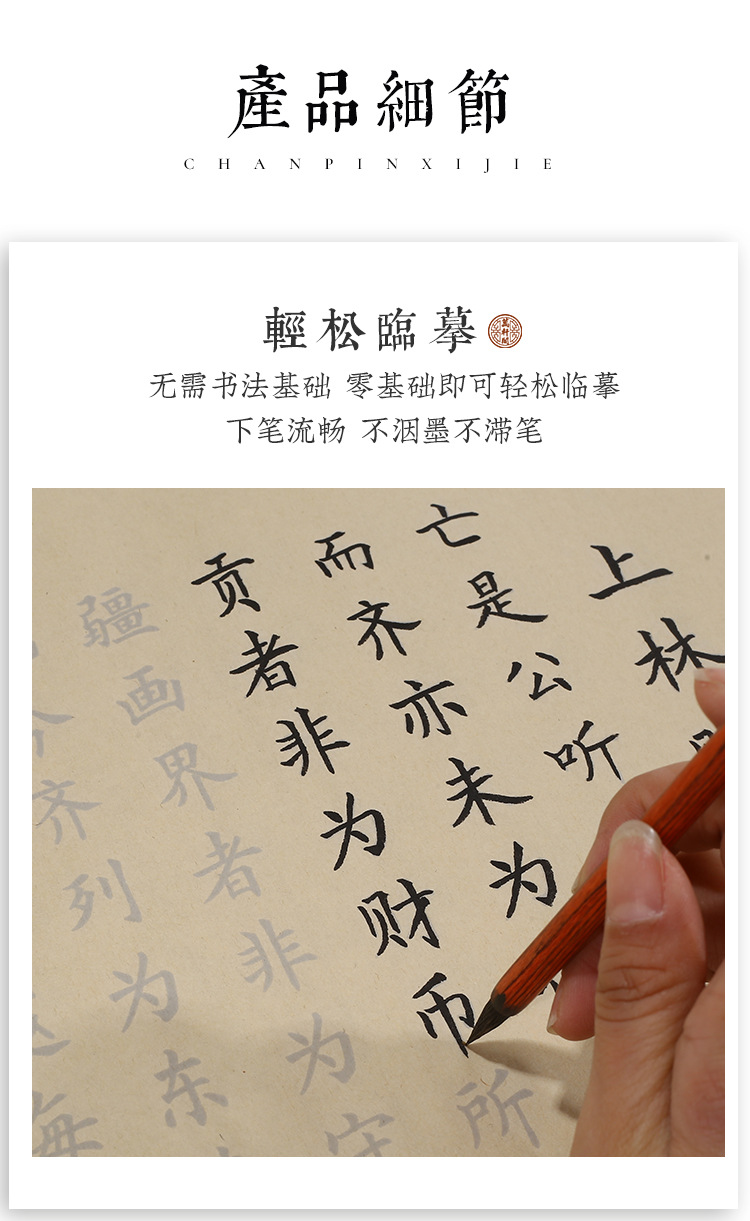 產品細節
CHANPINXIJIE
輕松臨摹
无需书法基础 零基础即可轻松临摹
下笔流畅 不洇墨不滞笔
上林
亡是公听
而齐亦未为
贡者非为财币所
疆画界者非为守
今齐列为东
海